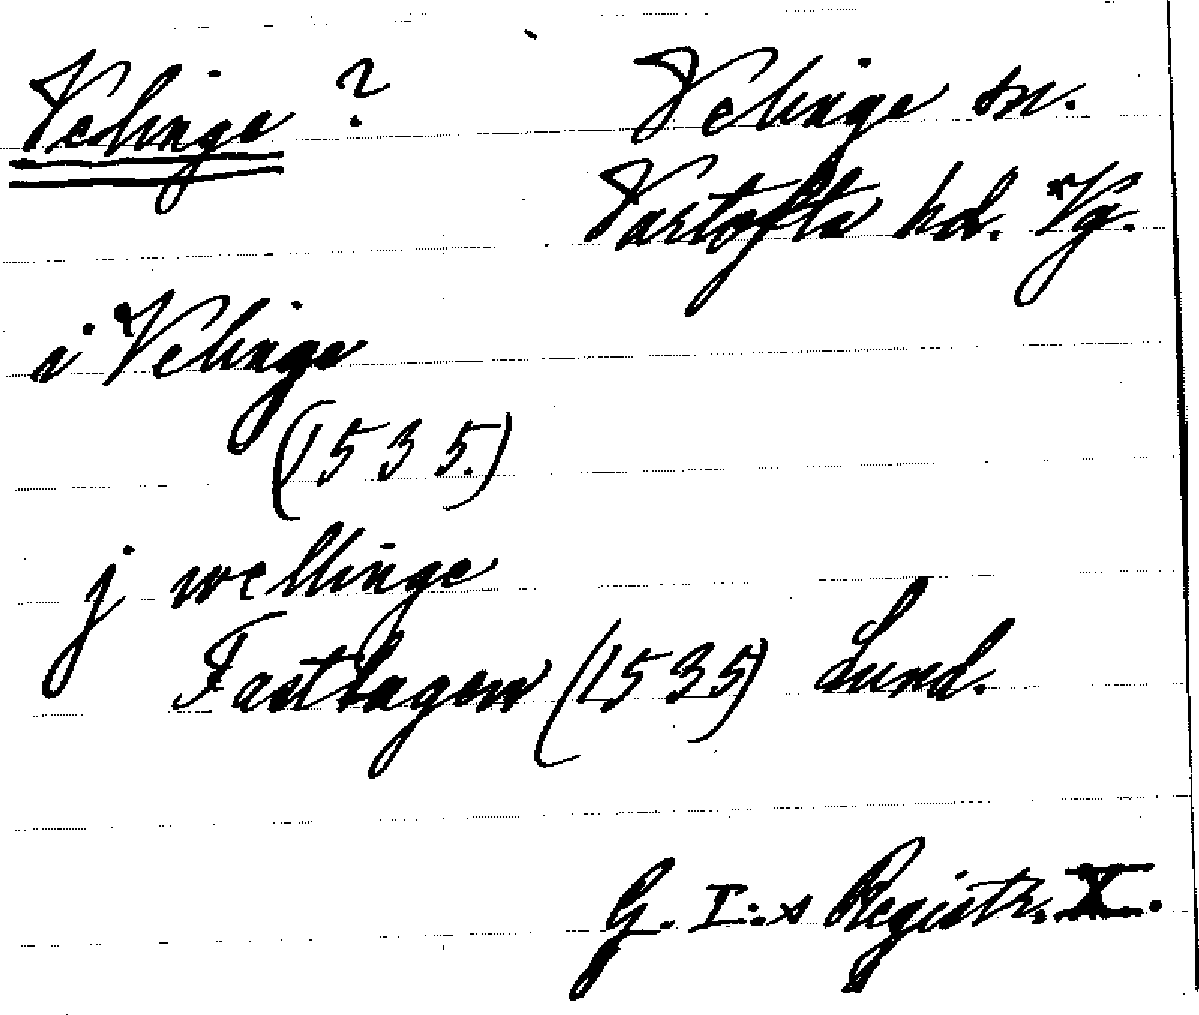 Velinge ? Velinge sn.
Vartofta hd. Vg.
i Velinge
(1535.)
j wellinge
Fastlagen (1535) Lund.
G. I:s Registr. X.